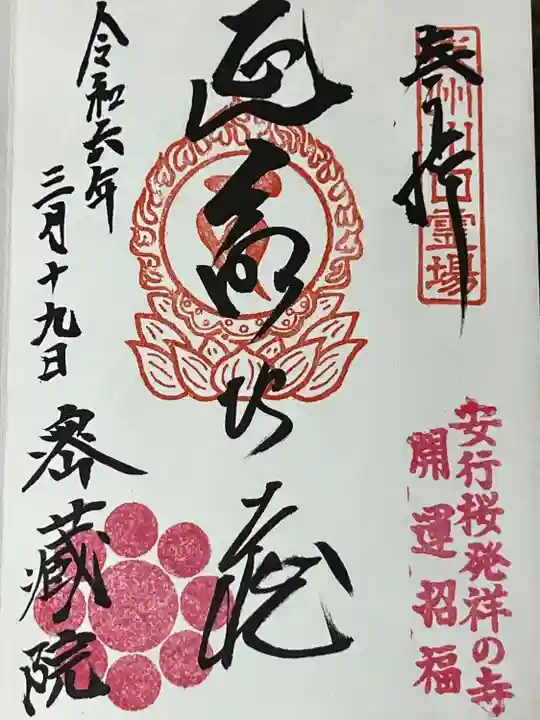 奉拝
武州川口霊場
安行桜発祥の寺
開運招福
延命地蔵
令和六年
三月十九日
密蔵院